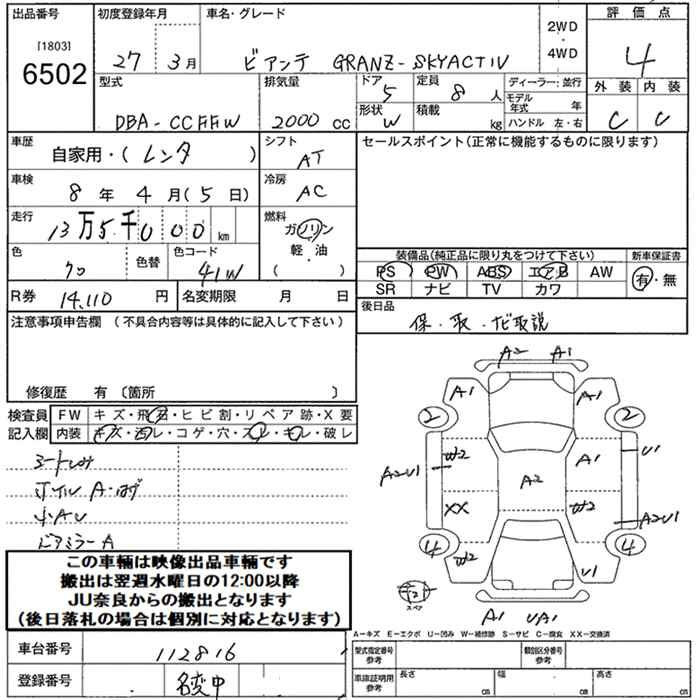 出品番号
[1803]
6502
初度登録年月
27 3月
車名・グレード
ビアンテ GRANZ-SKYACTIV
2WD
・
4WD
評価点
4
外装 内装
C C
型式
DBA-CCFFW
排気量
2000 cc
ドア
5
形状
W
定員
8 人
積載
kg
ディーラー・並行
モデル年式 年
ハンドル 左・右
車歴
自家用・(レンタ )
シフト
AT
セールスポイント(正常に機能するものに限ります)
車検
8 年 4 月(5 日)
冷房
AC
走行
13万5千000 km
燃料
ガソリン
軽・油
( )
色
クロ
色替
色コード
41W
装備品(純正品に限り丸をつけて下さい)
新車保証書
PS PW ABS エアB AW
SR ナビ TV カワ
有・無
R券 14,110 円
名変期限 月 日
後日品
保・取・ナビ取説
注意事項申告欄 (不具合内容等は具体的に記入して下さい)
修復歴 有 〔箇所 〕
検査員
記入欄
FW キズ・飛石・ヒビ割・リペア跡・X要
内装 キズ・汚レ・コゲ・穴・スレ・キレ・破レ
シートしみ
ホイル A・ハゲ
小AU
ドアミラーA
A2 A1
A1 A1
2 2
W2 A1 U1
A2U1 A2
XX W2 A2U1
4 4
W2 U1
スペア
A1 UA1
この車輌は映像出品車輌です
搬出は翌週水曜日の12:00以降
JU奈良からの搬出となります
(後日落札の場合は個別に対応となります)
A－キズ E－エクボ U－凹み W－補修跡 S－サビ C－腐食 XX－交換済
車台番号
112816
型式指定番号
参考
類別区分番号
参考
登録番号
名変中
車庫証明用
参考
長さ cm
幅 cm
高さ cm